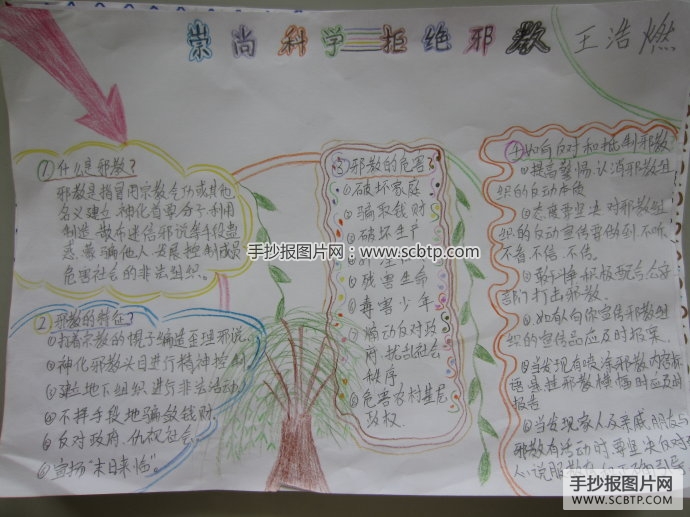 崇尚科学拒绝邪教
王浩燃
①什么是邪教?
邪教是指冒用宗教气功或其他
名义建立神化首要分子利用
制造散布迷信邪说等手段蛊
惑蒙骗他人发展控制成员
危害社会的非法组织。
②邪教的特征?
①打着宗教的幌子编造歪理邪说。
②神化邪教头目进行精神控制
③建立地下组织进行非法活动
④不择手段地骗敛钱财
⑤反对政府、仇视社会
⑥宣扬"末日来临"。
③邪教的危害?
①破坏家庭
②骗取钱财
③破坏生产
⑤残害生命
⑥毒害少年
⑦煽动反对政
府,扰乱社会
秩序
⑧危害农村基层
政权.
手抄报图片网:
www.scbtp.com
④如何反对和抵制邪教
①提高警惕,认清邪教组
织的反动本质
②态度要坚决对邪教组
织的反动宣传要做到不听、
不看、不信、不传.
邪教.
④如有人向你宣传邪教组
织的宣传品应及时报案.
⑤当发现有喷涂邪教内容标
语悬挂邪教横幅时应及时
报告
⑥当发现家人及亲戚、朋友与
邪教有活动时,要坚决反对
手抄报图片网
WWW.SCBTP.COM